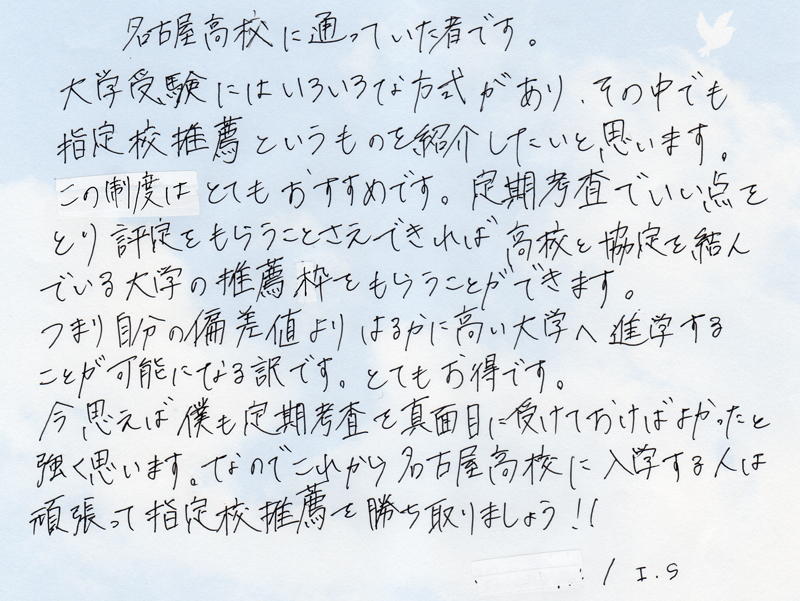 名古屋高校に通っていた者です。
大学受験にはいろいろな方式があり、その中でも
指定校推薦というものを紹介したいと思います。
この制度はとてもおすすめです。定期考査でいい点を
とり評定をもらうことさえできれば高校と協定を結ん
でいる大学の推薦枠をもらうことができます。
つまり自分の偏差値よりはるかに高い大学へ進学する
ことが可能になる訳です。とてもお得です。
今思えば僕も定期考査を真面目に受けておけばよかったと
強く思います。なのでこれから名古屋高校に入学する人は
頑張って指定校推薦を勝ち取りましょう!!
/ I.S